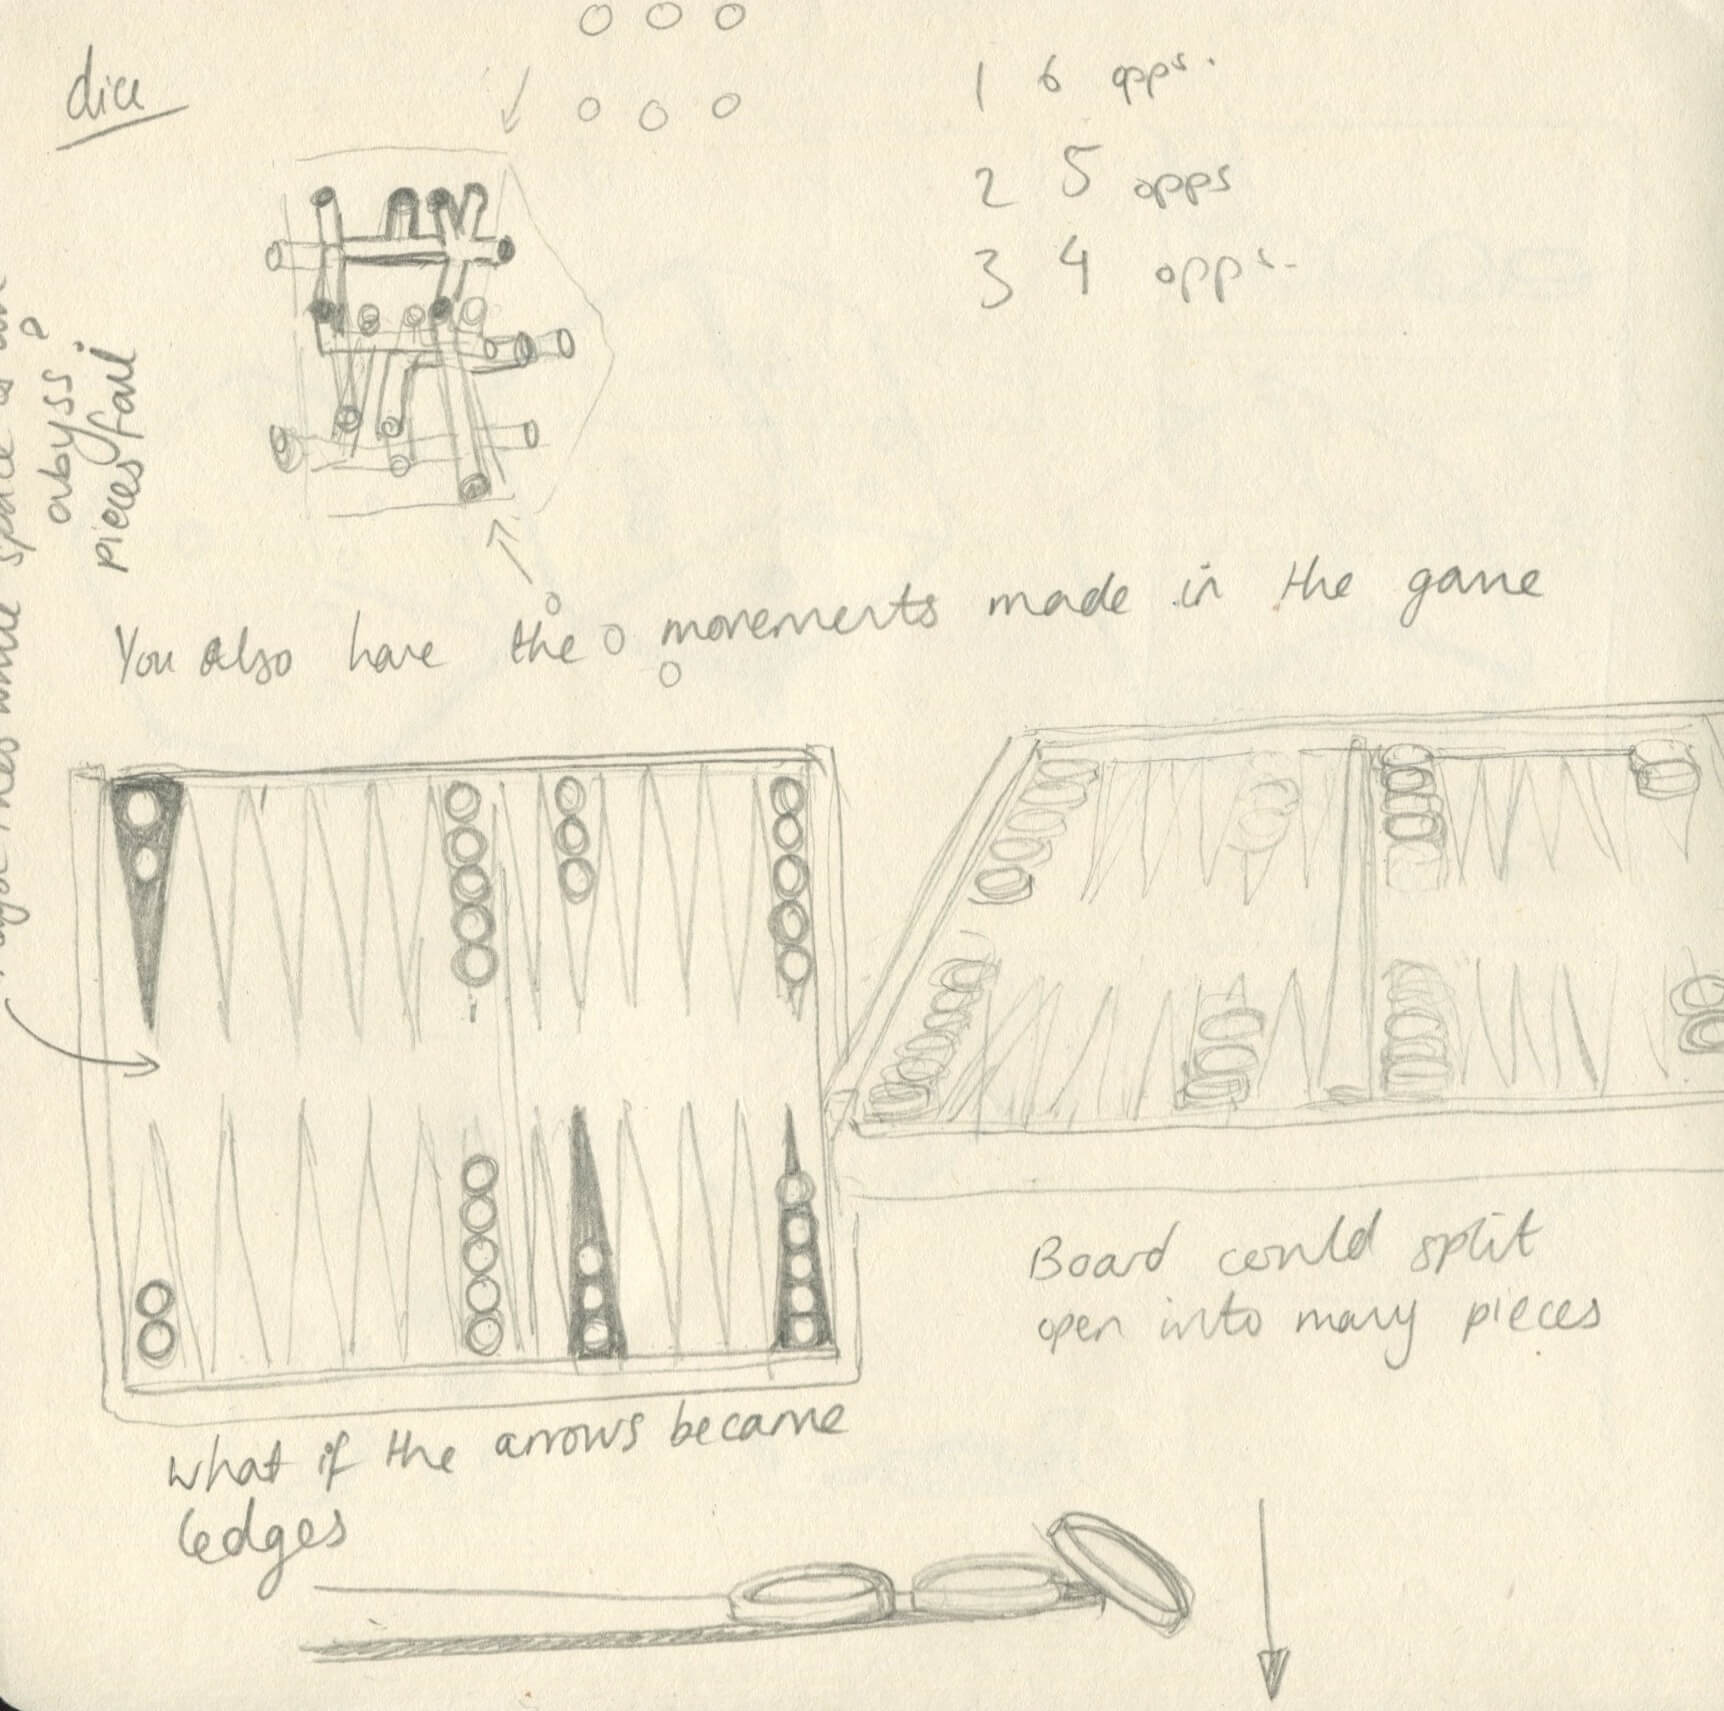 dice
1 6 opps.
2 5 opps
3 4 opps.
white space is an
abyss?
pieces fall
You also have the movements made in the game
Board could split
open into many pieces
what if the arrows became
ledges